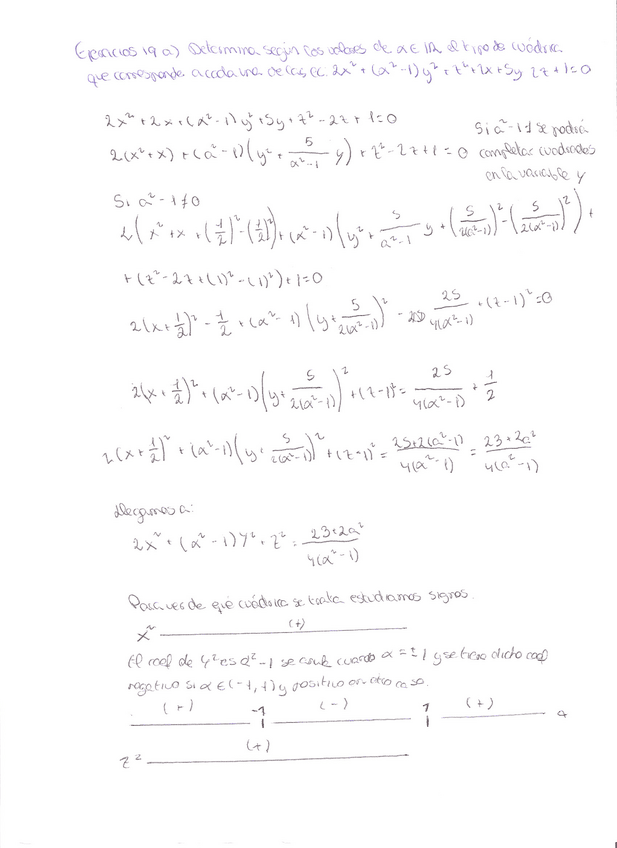 Ejercicios 19 a) Determina según los valores de α ∈ ℝ el tipo de cuádrica
que corresponde a cada una de las ec. 2x² + (α²-1)y² + z² + 2x + 5y - 2z + 1 = 0
2x² + 2x + (α²-1)y² + 5y + z² - 2z + 1 = 0
2(x²+x) + (α²-1)(y² + 5/(α²-1) y) + z² - 2z + 1 = 0
Si α²-1 se podrá
completar cuadrados
en la variable y
Si α²-1≠0
2(x² + x + (1/2)² - (1/2)²) + (α²-1)(y² + 5/(α²-1) y + (5/2(α²-1))² - (5/2(α²-1))²) +
+ (z² - 2z + (1)² - (1)²) + 1 = 0
2(x + 1/2)² - 1/2 + (α²-1)(y + 5/2(α²-1))² - 25/4(α²-1) + (z-1)² = 0
2(x + 1/2)² + (α²-1)(y + 5/2(α²-1))² + (z-1)² = 25/4(α²-1) + 1/2
2(x + 1/2)² + (α²-1)(y + 5/2(α²-1))² + (z-1)² = 25+2(α²-1)/4(α²-1) = 23+2α²/4(α²-1)
Llegamos a:
2x² + (α²-1)y² + z² = 23+2α²/4(α²-1)
Para ver de qué cuádrica se trata estudiamos signos.
x² (+)
El coef de y² es α²-1 se anula cuando α = ±1 y se tiene dicho coef
negativo si α ∈ (-1, 1) y positivo en otro caso.
(+) -1 (-) 1 (+) α
z² (+)